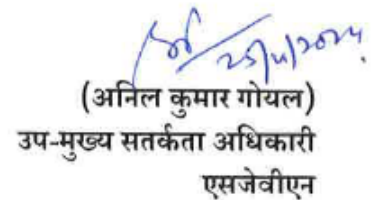 25/4/2024
(अनिल कुमार गोयल)
उप-मुख्य सतर्कता अधिकारी
एसजेवीएन